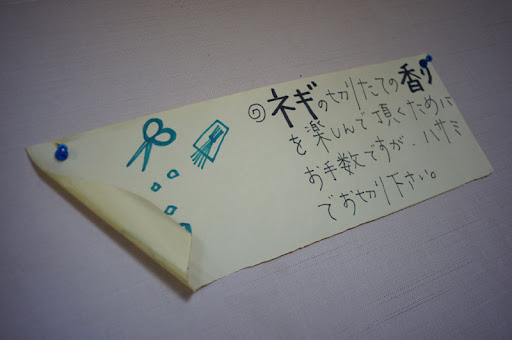 ◎ネギの切りたての香り
を楽しんで頂くために
お手数ですが、ハサミ
でお切り下さい。